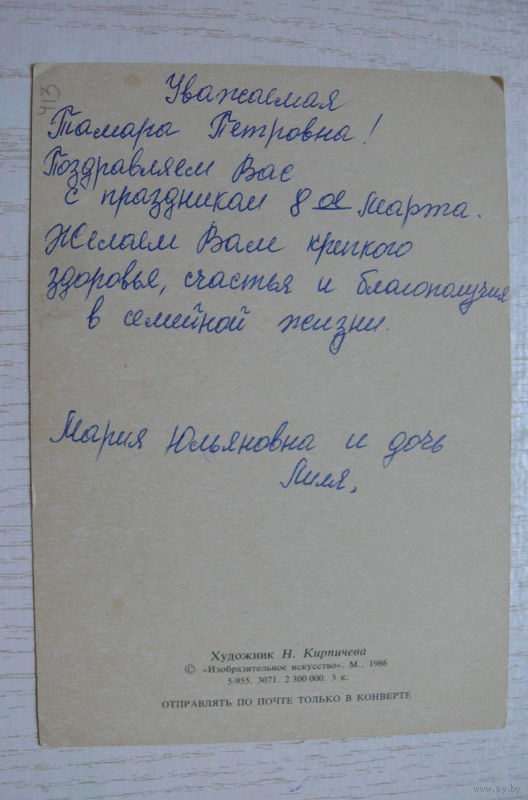 413
Уважаемая
Тамара Петровна!
Поздравляем Вас
с праздником 8 ое Марта.
Желаем Вам крепкого
здоровья, счастья и благополучия
в семейной жизни.
Мария Юльяновна и дочь
Лиля.
Художник Н. Кирпичева
© «Изобразительное искусство». М., 1986
5-955. 3071. 2 300 000. 3 к.
ОТПРАВЛЯТЬ ПО ПОЧТЕ ТОЛЬКО В КОНВЕРТЕ
www.ay.by